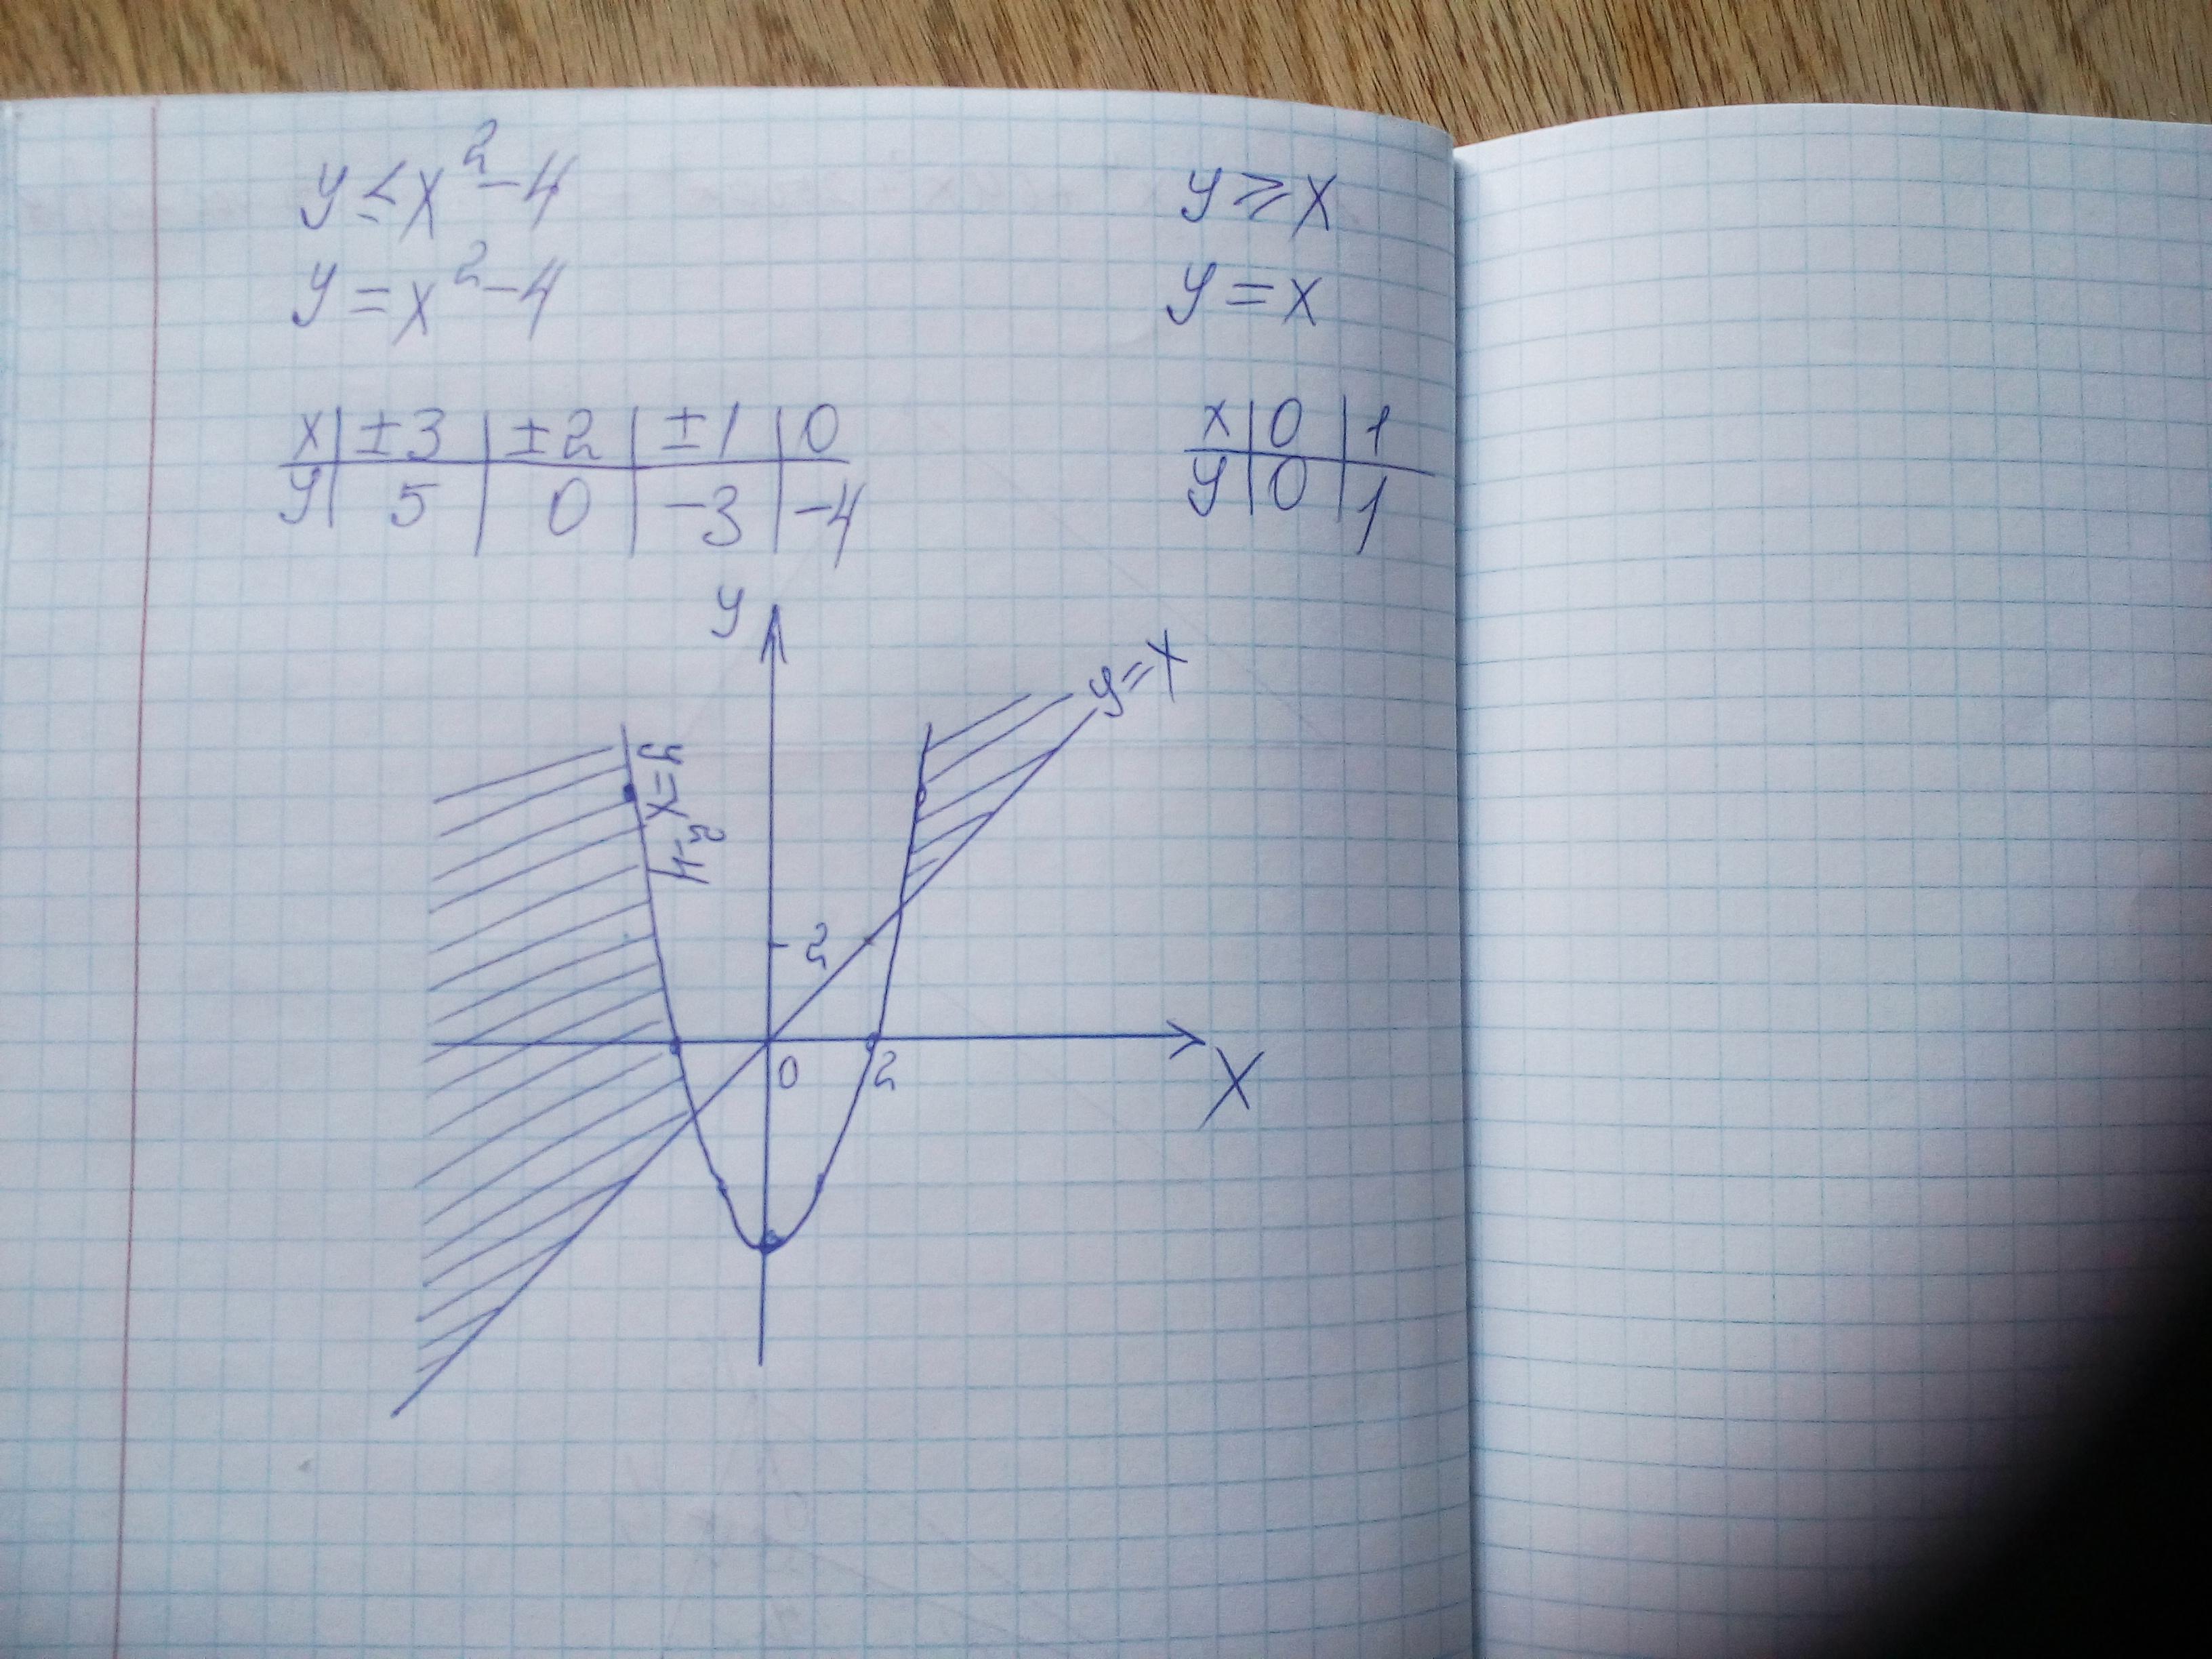 y ≤ x² - 4
y = x² - 4
x | ±3 | ±2 | ±1 | 0
y | 5 | 0 | -3 | -4
y ⩾ x
y = x
x | 0 | 1
y | 0 | 1
y
y=x
y=x²-4
2
0
2
X